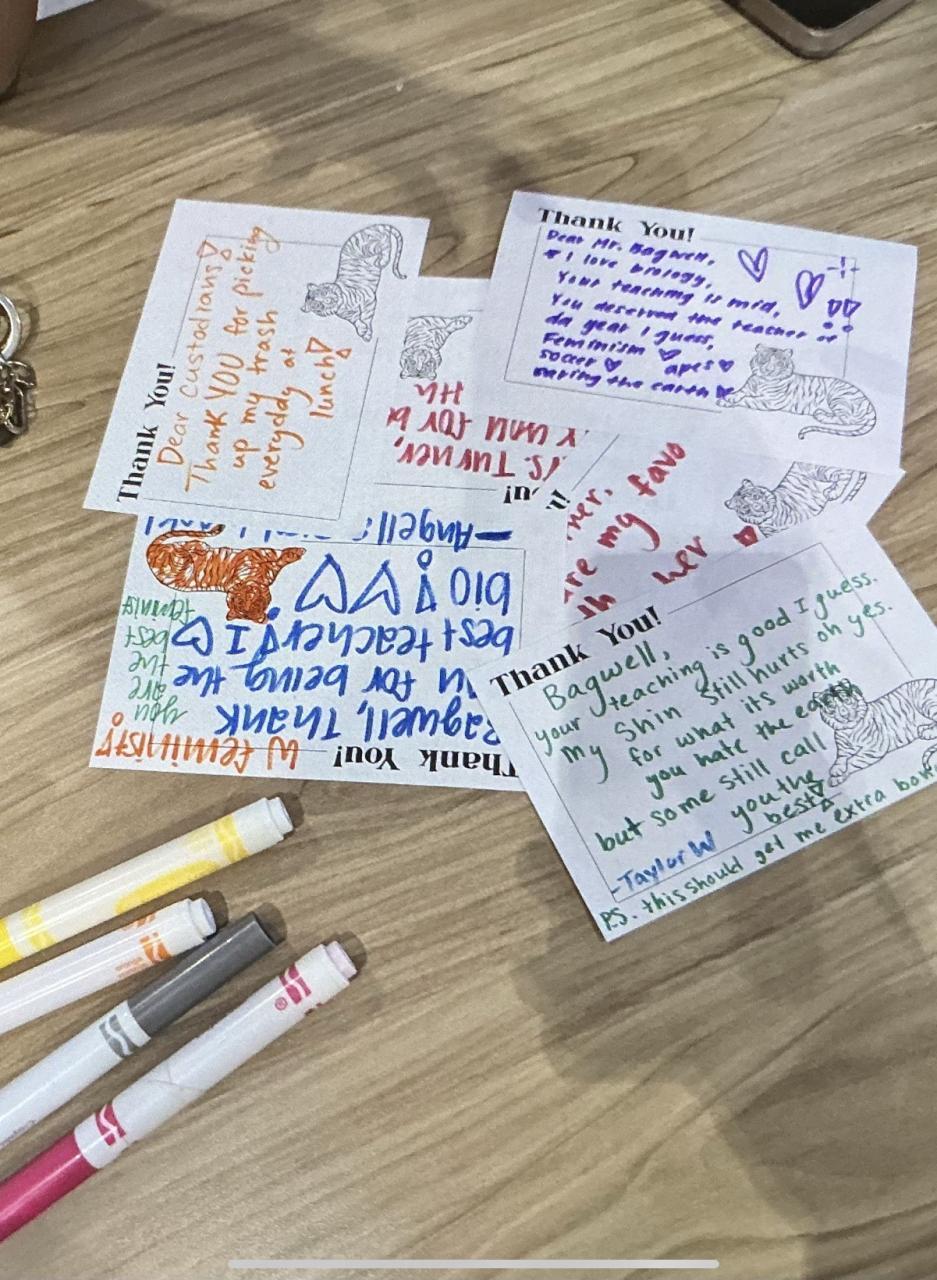 Thank You!
Dear Custodians
Thank YOU for picking
up my trash
everyday at
lunch
Thank You!
Dear Mr. Bagwell,
I love biology,
Your teaching is mid,
You deserved the teacher of
da year I guess,
Feminism apes
soccer
eating the earth
s. Turner,
k you for b
ner.
are my favo
her
Thank You!
W feminist!
Bagwell, Thank
u for being the
best teacher! I
bio!
—Angell
you
are
the
best
feminist
Thank You!
Bagwell,
your teaching is good I guess.
my shin still hurts oh yes.
for what its worth
you hate the earth
but some still call
you the
best
-Taylor W
P.S. this should get me extra